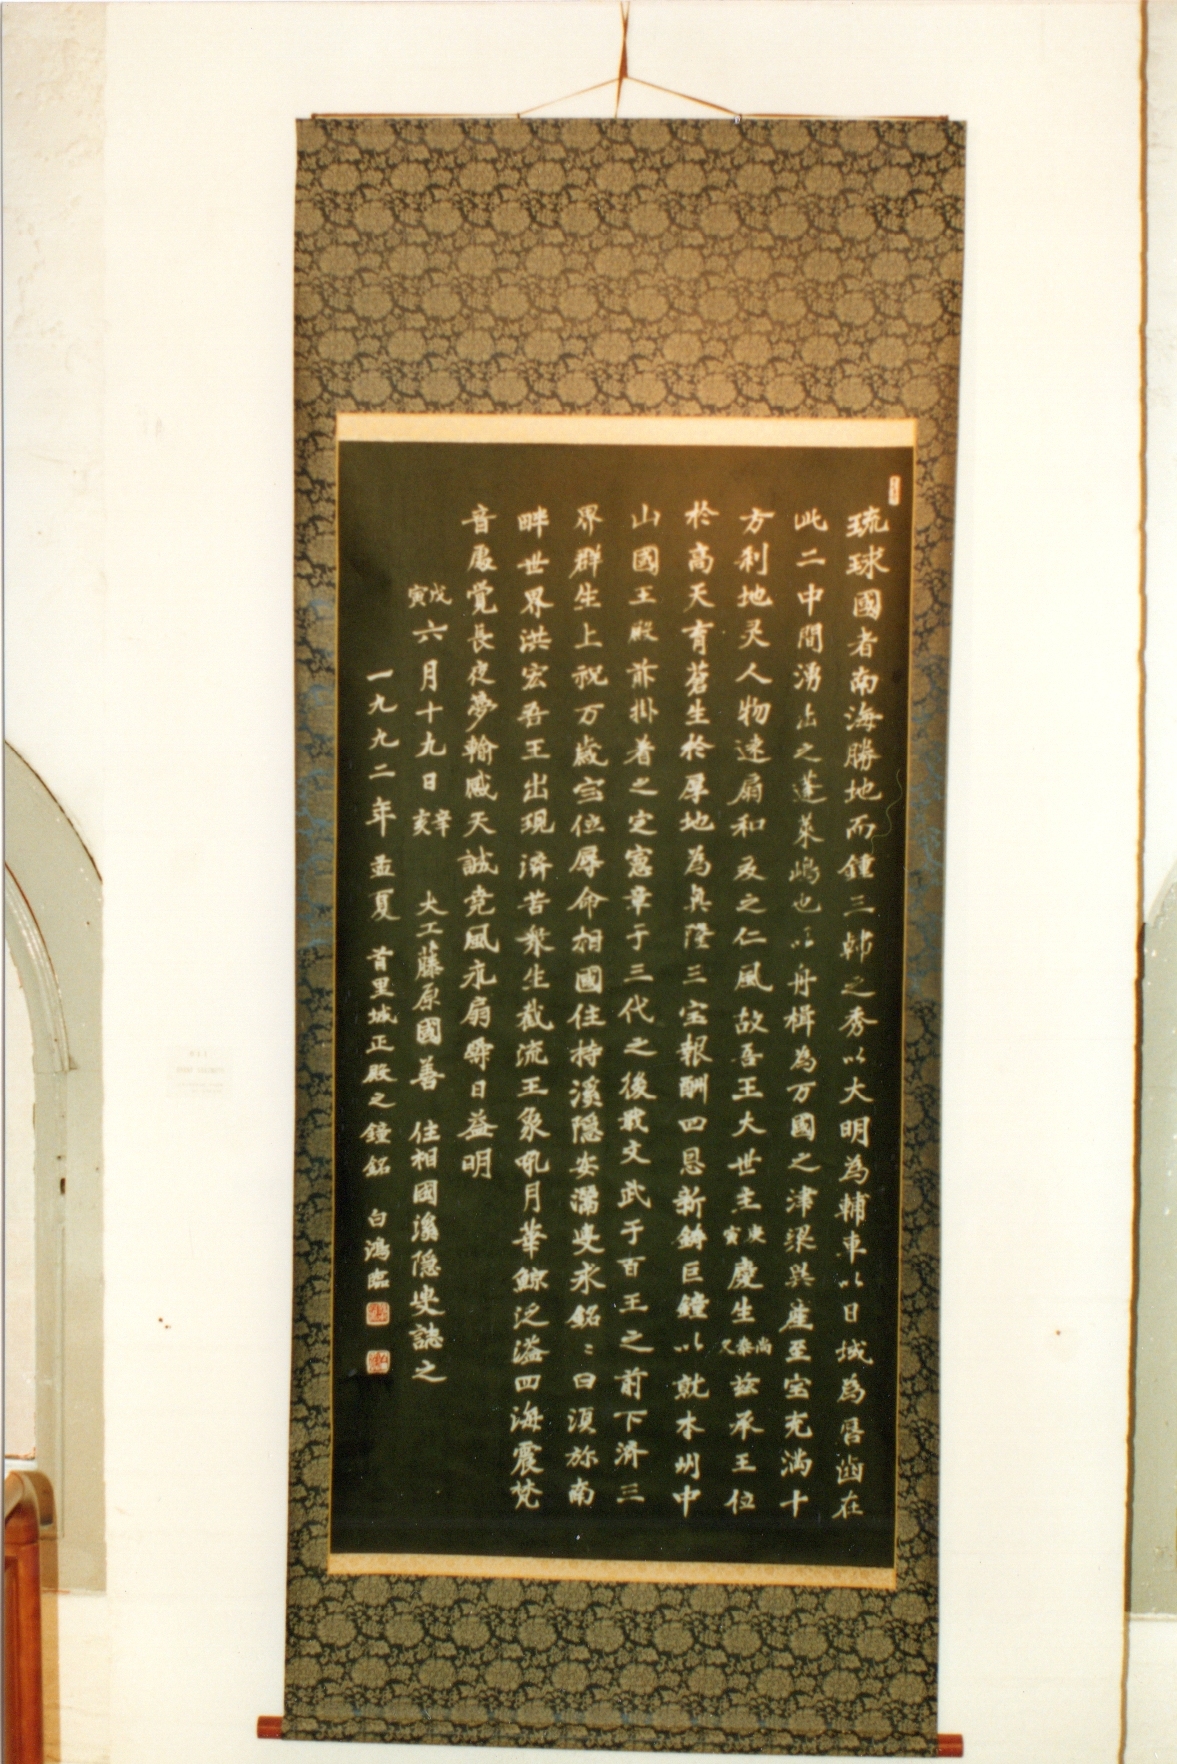 琉球國者南海勝地而鍾三韓之秀以大明為輔車以日域為唇齒在
此二中間湧出之蓬萊嶋也以舟楫為万國之津梁異産至宝充満十
方刹地灵人物遠扇和夏之仁風故吾王大世主庚寅慶生尚泰久茲承王位
於高天育蒼生於厚地為興隆三宝報酬四恩新鋳巨鐘以就本州中
山國王殿前掛着之定憲章于三代之後戢文武于百王之前下済三
界群生上祝万歳宝位辱命相國住持溪隠安潜叟求銘〻曰須弥南
畔世界洪宏吾王出現済苦衆生截流玉象吼月華鯨泛溢四海震梵
音震覚長夜夢輸感天誠尭風永扇舜日益明
戊寅六月十九日辛亥 大工藤原國善 住相國溪隠叟誌之
一九九二年 孟夏 首里城正殿之鐘銘 白鴻臨